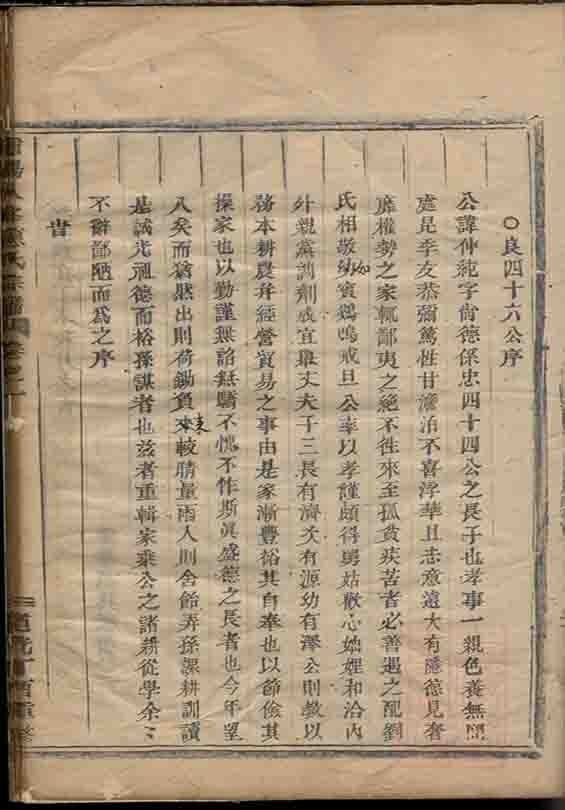 ○良四十六公序
公諱仲純字尙德係忠四十四公之長子也孝事一親色養無間
處昆季友恭彌篤性甘澹泊不喜浮華且志意遠大有隱德見奢
靡權勢之家輒鄙夷之絶不徃來至孤貧疾苦者必善遇之配劉
氏相敬如賓鷄鳴戒旦公率以孝謹頗得舅姑歡心妯娌和洽內
外親黨調劑咸宜舉丈夫子三長有濟次有源幼有澤公則教以
務本耕農并經營貿易之事由是家漸豐裕其自奉也以節儉其
操家也以勤謹無諂無驕不愧不怍斯眞盛德之長者也今年望
八矣而猶然出則荷鋤負耒較晴量雨入則含飴弄孫課耕訓讀
是誠光祖德而裕孫謀者也茲者重輯家乘公之諸耕從學余
不辭鄙陋而爲之序
旹